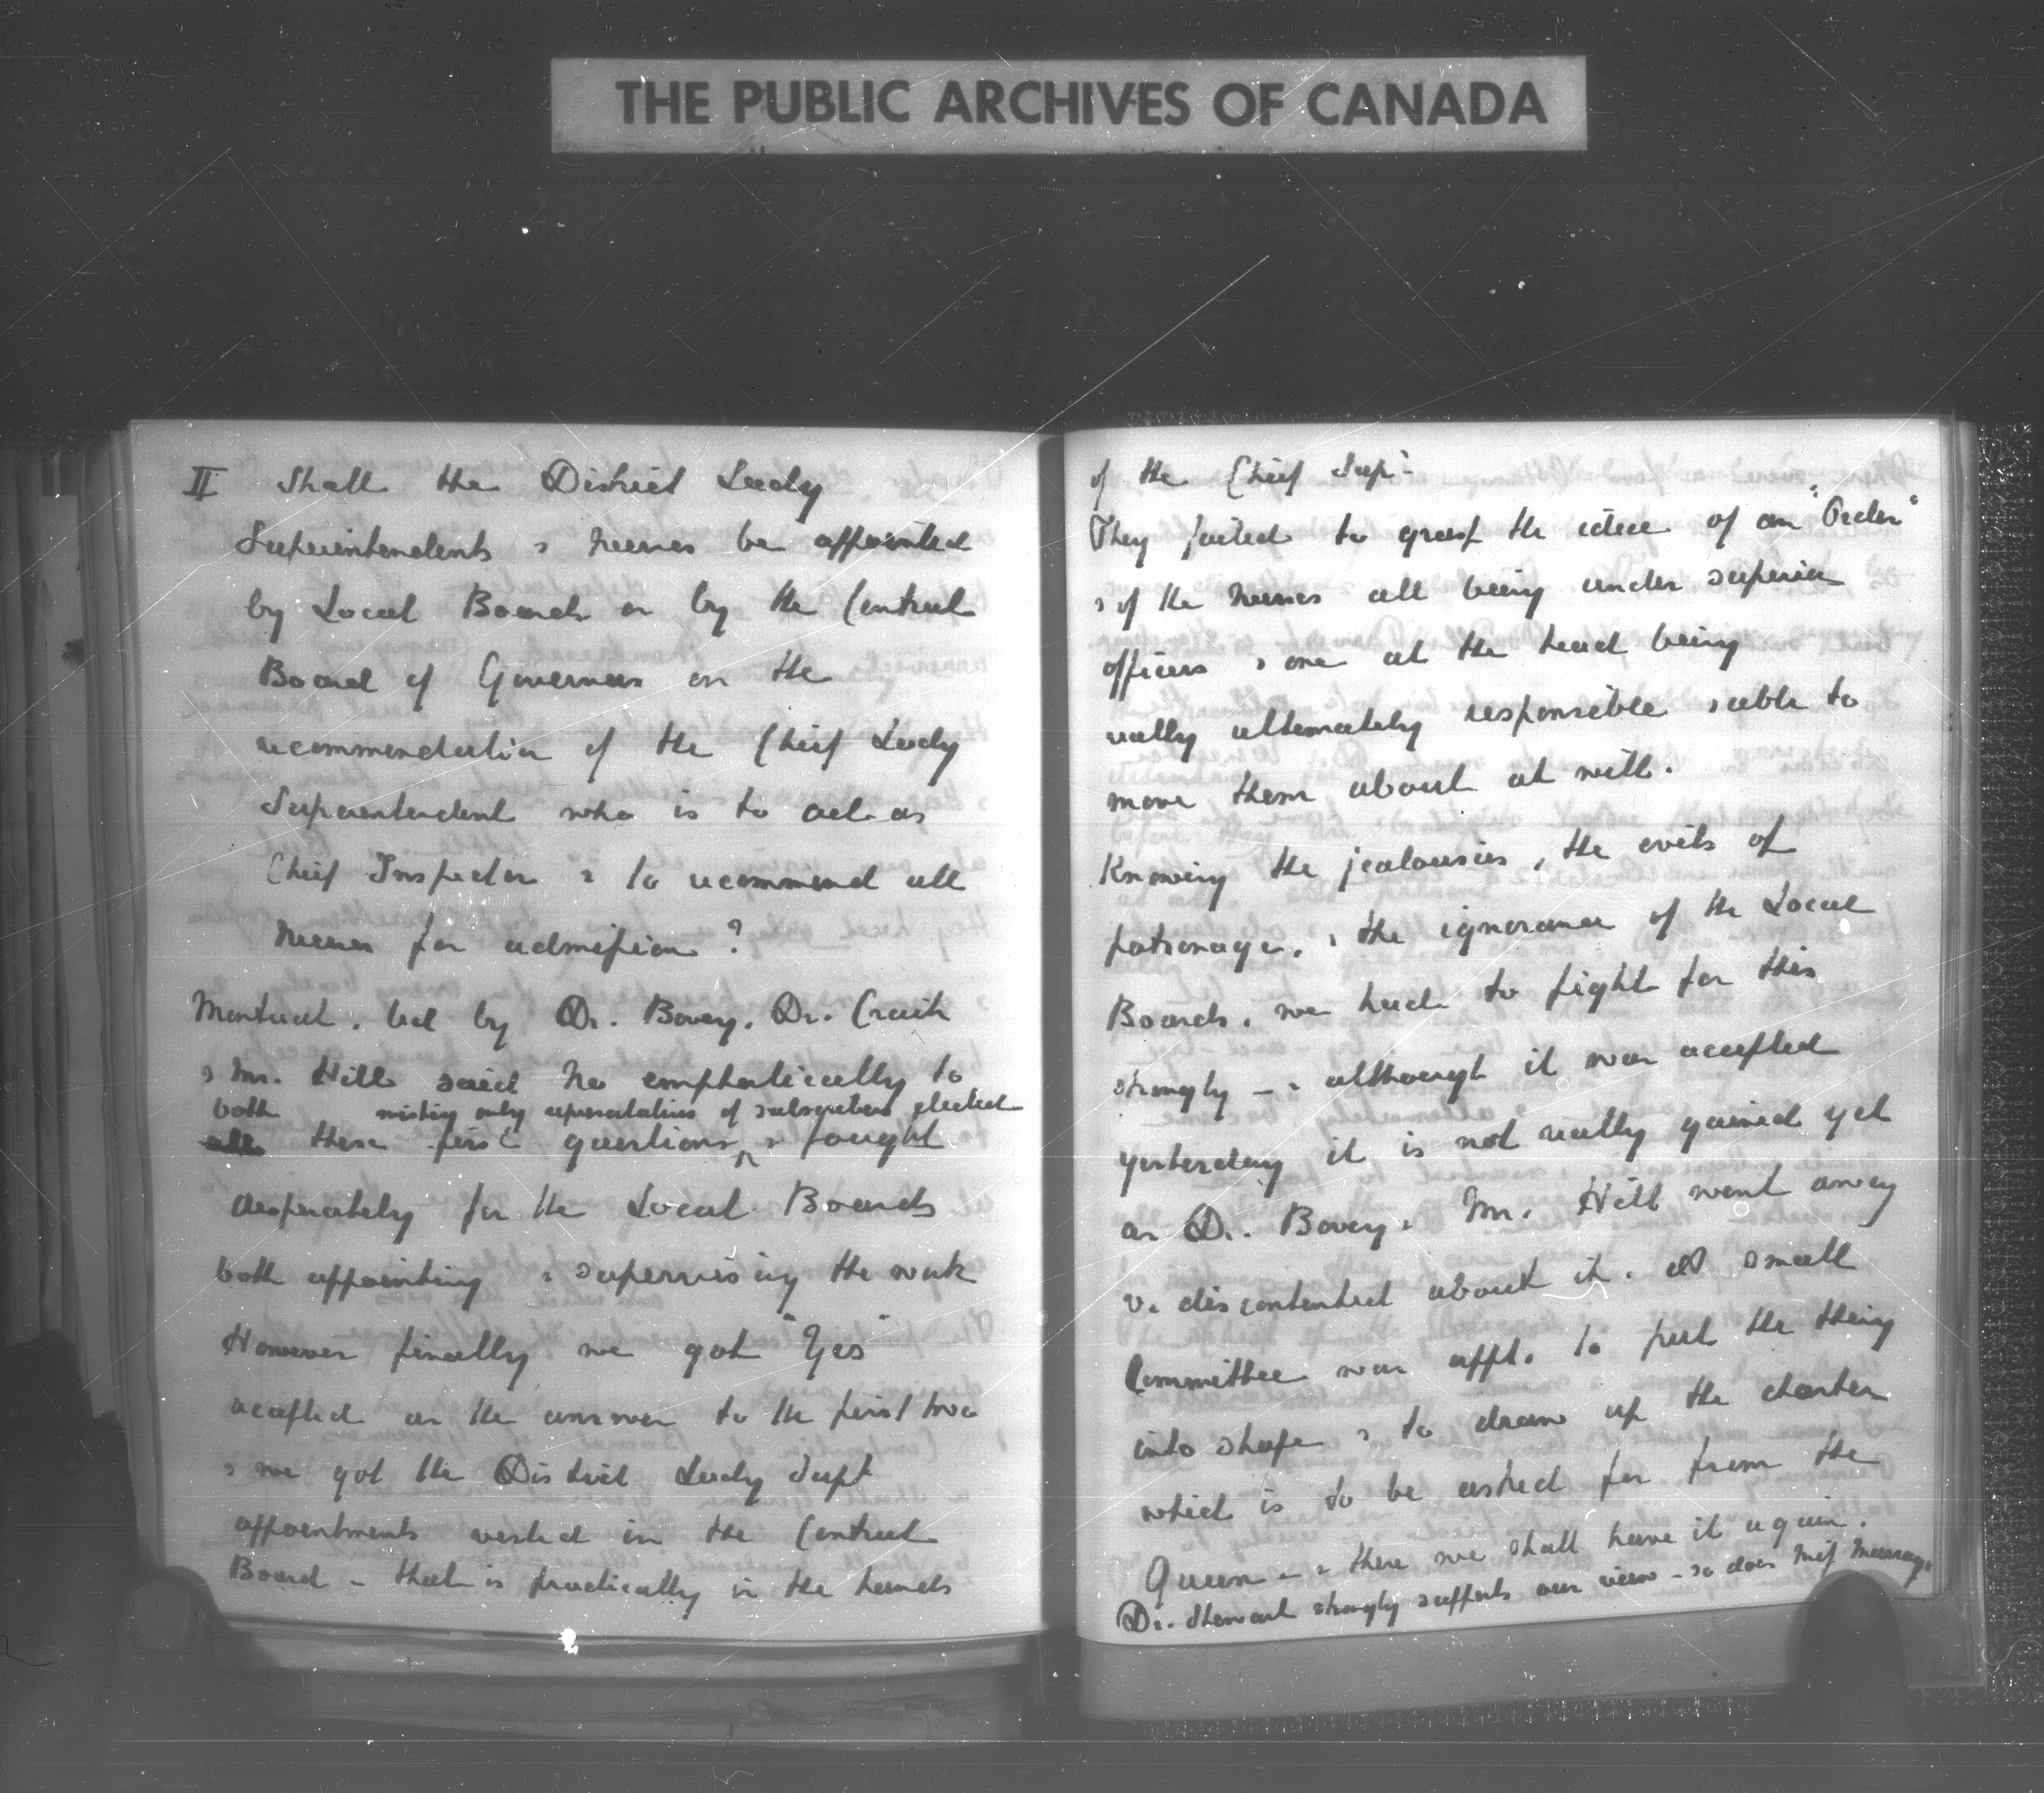 THE PUBLIC ARCHIVES OF CANADA
II Shall the District Lady
Superintendents & nurses be appointed
by Local Boards or by the Central
Board of Governors on the
recommendation of the Chief Lady
Superintendent who is to act as
Chief Inspector & to recommend all
nurses for admission?
Montreal, led by Dr. Bovey, Dr. Craik
& Mr. Hill said No emphatically to
both wishing only representatives of subscribers elected
all these first questions & fought
desperately for the Local Boards
both appointing & supervising the work
However finally we got "Yes"
accepted as the answer to the first two
& we got the District Lady Supt
appointments vested in the Central
Board – that is practically in the hands
of the Chief Supt
They failed to grasp the idea of an "Order"
& of the nurses all being under superior
officers & one at the head being
really ultimately responsible & able to
move them about at will.
Knowing the jealousies, the evils of
patronage, & the ignorance of the Local
Boards, we had to fight for this
strongly – & although it was accepted
yesterday it is not really gained yet
as Dr. Bovey & Mr. Hill went away
v. discontented about it. A small
Committee was appt. to put the thing
into shape & to draw up the charter
which is to be asked for from the
Queen – & there we shall have it again.
Dr. Stewart strongly supports our view – so does Miss Murray.